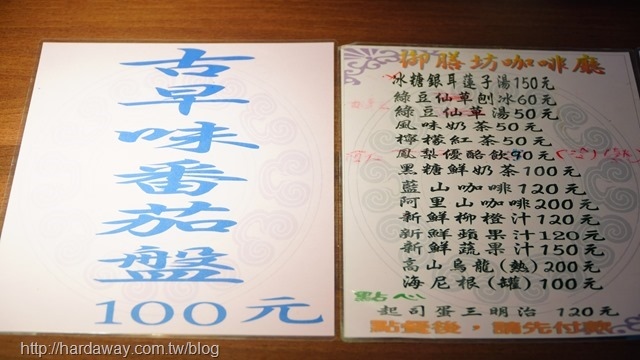 古早味番茄盤
100元
御膳坊咖啡廳
冰糖銀耳蓮子湯150元
綠豆仙草刨冰60元
綠豆仙草湯50元
風味奶茶50元
檸檬紅茶50元
鳳梨優酪飲90元
黑糖鮮奶茶100元
藍山咖啡120元
阿里山咖啡200元
新鮮柳橙汁120元
新鮮蘋果汁120元
新鮮蔬果汁150元
高山烏龍(熱)200元
海尼根(罐)100元
點心
起司蛋三明治 120元
點餐後，請先付款
http://hardaway.com.tw/blog